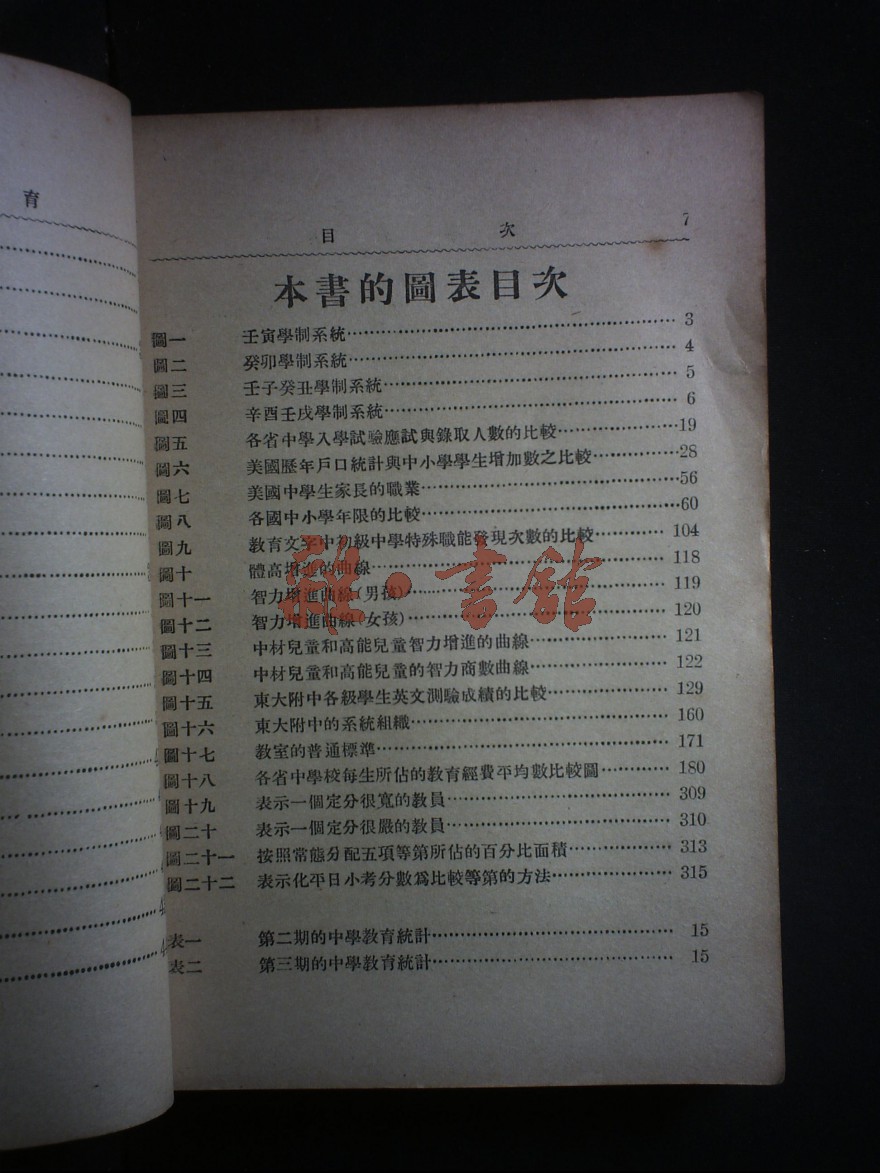 育
目 次 7
本書的圖表目次
圖一 壬寅學制系統 3
圖二 癸卯學制系統 4
圖三 壬子癸丑學制系統 5
圖四 辛酉壬戌學制系統 6
圖五 各省中學入學試驗應試與錄取人數的比較 19
圖六 美國歷年戶口統計與中小學學生增加數之比較 28
圖七 美國中學生家長的職業 56
圖八 各國中小學年限的比較 60
圖九 教育文字中初級中學特殊職能發現次數的比較 104
圖十 體高增進的曲線 118
圖十一 智力增進曲線(男孩) 119
圖十二 智力增進曲線(女孩) 120
圖十三 中材兒童和高能兒童智力增進的曲線 121
圖十四 中材兒童和高能兒童的智力商數曲線 122
圖十五 東大附中各級學生英文測驗成績的比較 129
圖十六 東大附中的系統組織 160
圖十七 教室的普通標準 171
圖十八 各省中學校每生所佔的教育經費平均數比較圖 180
圖十九 表示一個定分很寬的教員 309
圖二十 表示一個定分很嚴的教員 310
圖二十一 按照常態分配五項等第所佔的百分比面積 313
圖二十二 表示化平日小考分數爲比較等第的方法 315
表一 第二期的中學教育統計 15
表二 第三期的中學教育統計 15
雜·書館